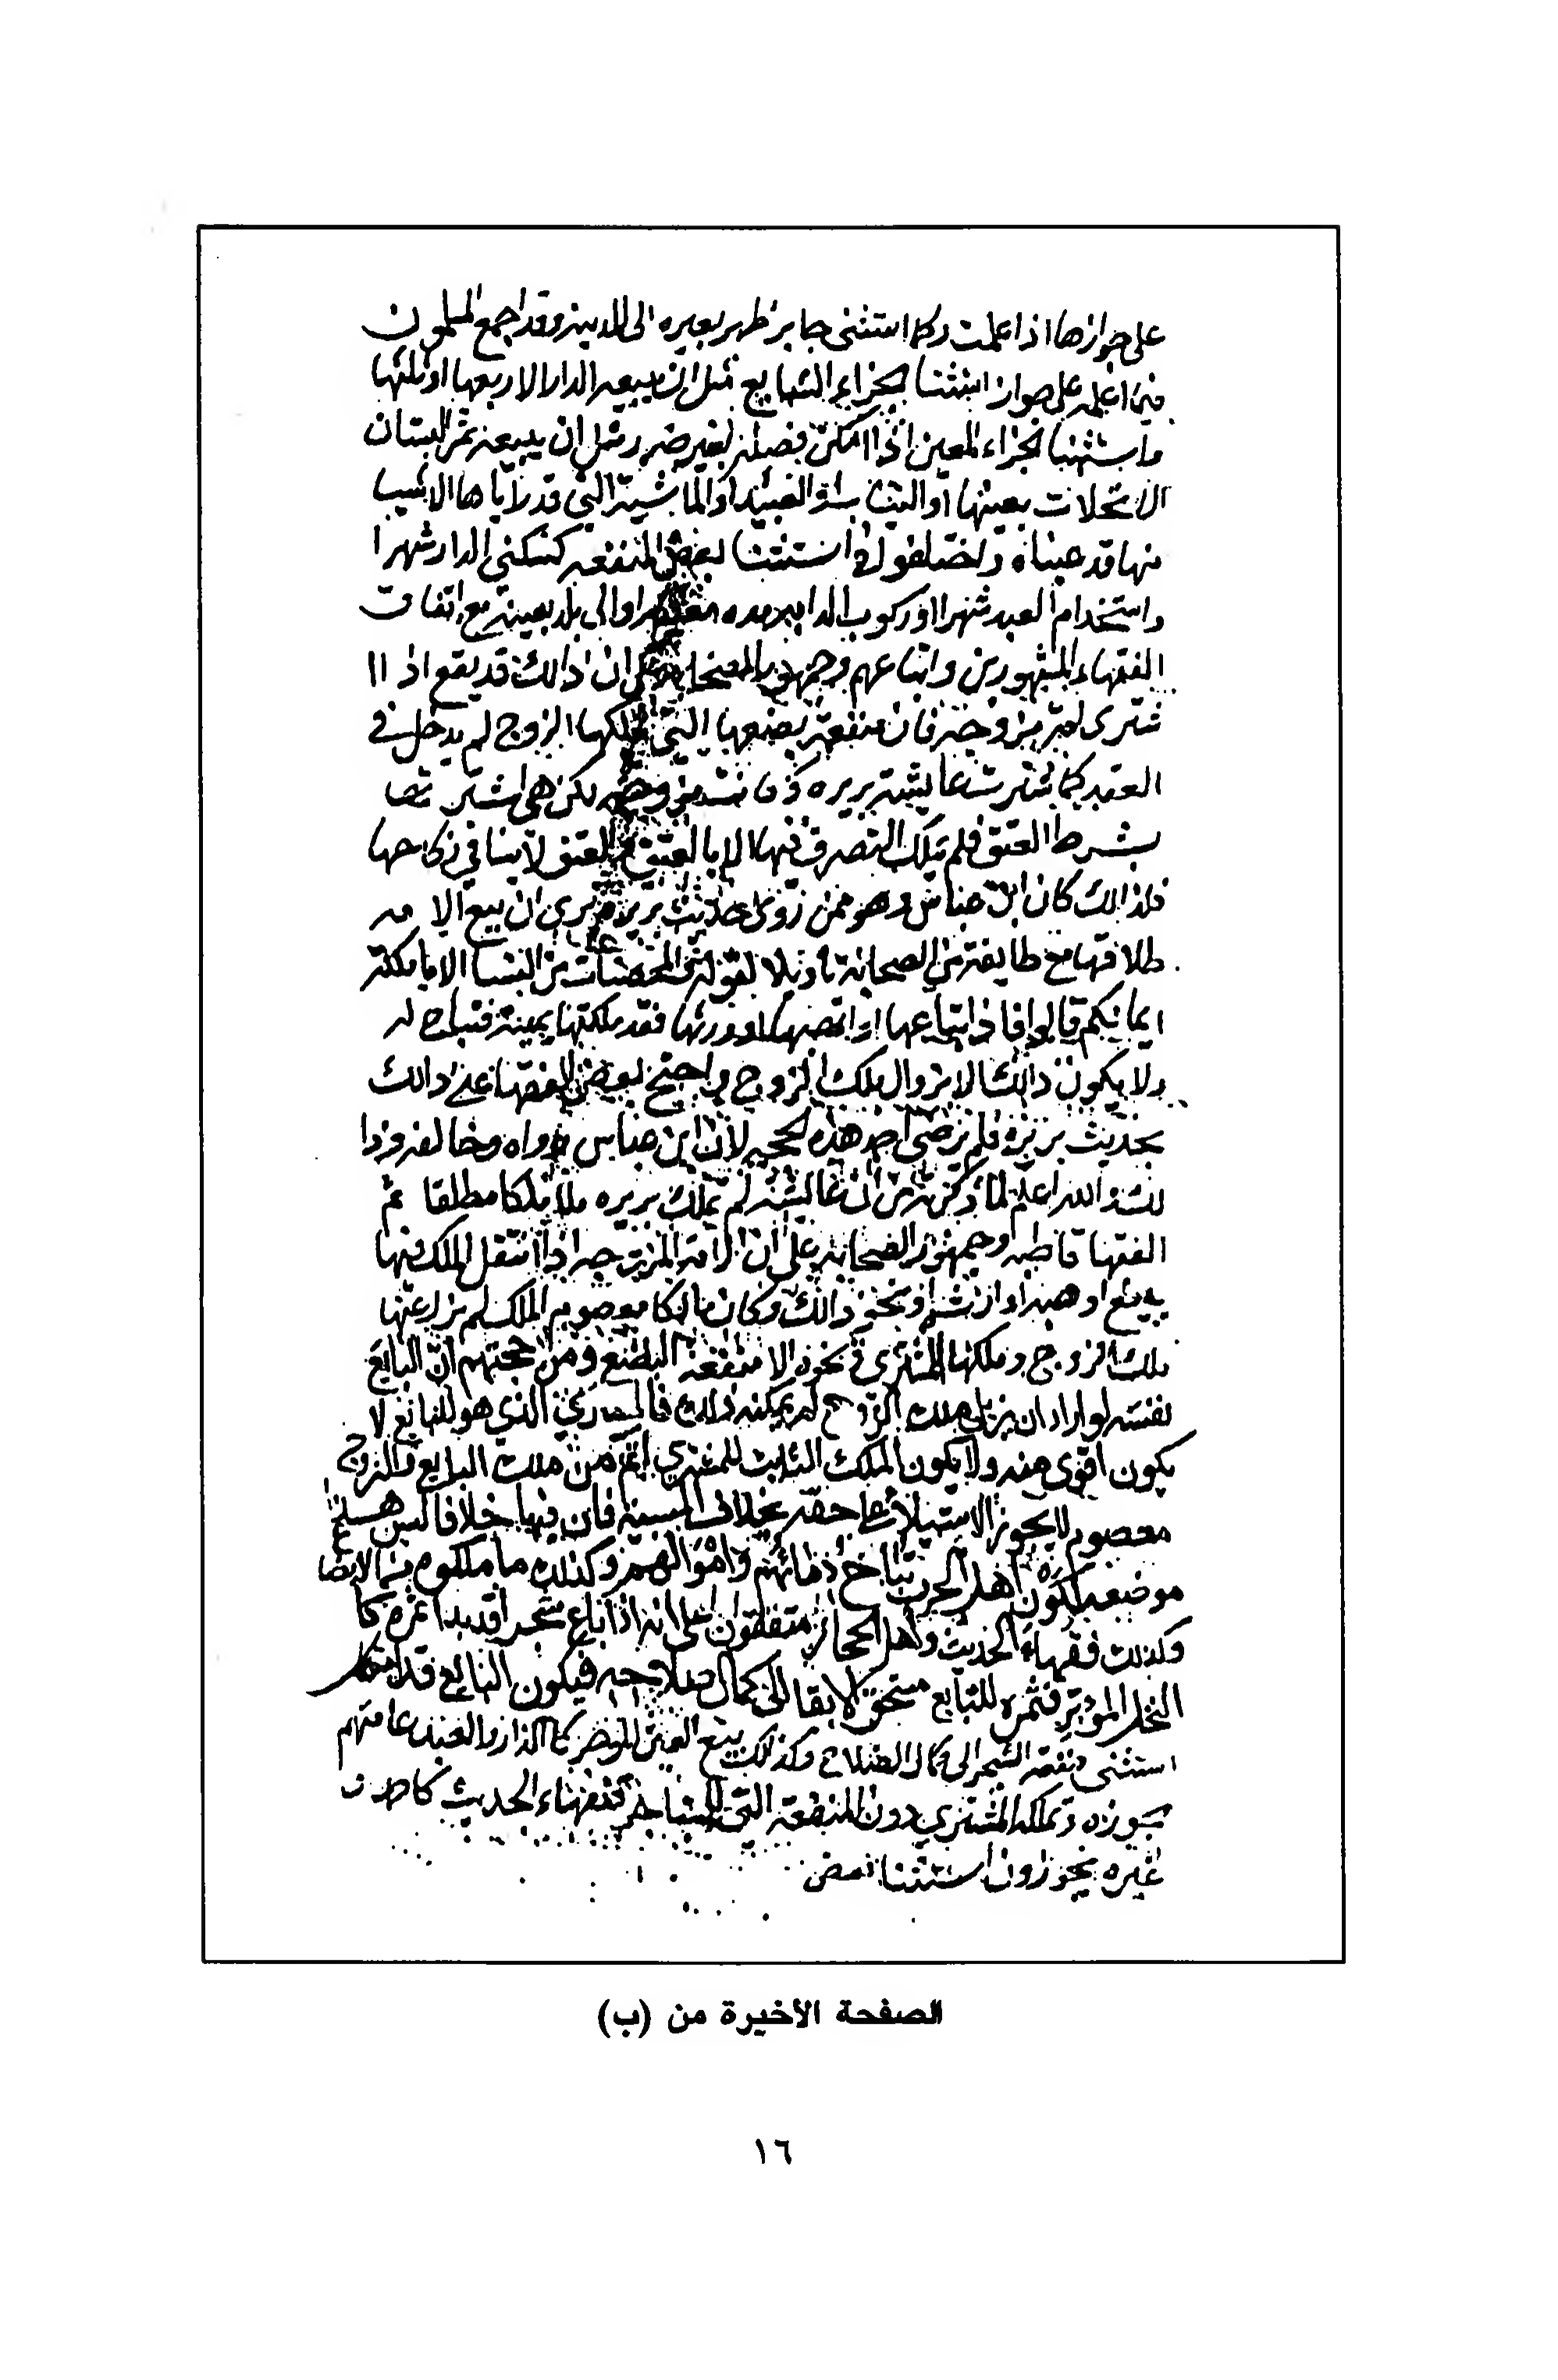 على جوازها اذا علمت وكما استثنى جابر ظهر بعيره الى المدينة وقد اجمع المسلمون
فيما اعلم على جواز استثنا الجزاء الشايع مثل ان يبيعه الدار الا ربعها او ثلثها
واستثنا الجزاء المعين اذا امكن فصله بغير ضرر مثل ان يبيعه ثمر البستان
الا نخلات بعينها او الثياب او العبيد او الماشية التي قد راياها الا شيئا
منها قد عيناه واختلفوا في استثنا بعض المنفعه كسكنى الدار شهرا
واستخدام العبد شهرا او ركوب الدابه مده معينه او الى بلد بعينه مع اتفاق
الفقهاء المشهورين واتباعهم وجمهور الصحابه على ان ذالك قد يقع اذا ا
شترى امة مزوجة فان منفعة بضعها التي يملكها الزوج لم يدخل في
العقد كما اشترت عايشة بريره وكانت مزوجه لكن هي اشترتها
بشرط العتق فلم تملك التصرف فيها الا بالعتق والعتق لا ينافي نكاحها
فلذالك كان ابن عباس وهو ممن روى حديث بريرة يرى ان بيع الامه
طلاقها مع طايفة من الصحابة تاويلا لقوله والمحصنات من النسا الا ما ملكت
ايمانكم قالوا فاذا ابتاعها او اتهبها او ورثها فقد ملكتها يمينه فتباح له
ولا يكون ذالك الا بزوال ملك الزوج واحتج بعض الفقها على ذالك
بحديث بريرة فلم يرض احمد هذه الحجه لان ابن عباس رواه وخالفه وذا
لك والله اعلم لما ذكرته من ان عايشه لم تملك بريره ملكا مطلقا ثم
الفقها قاطبه وجمهور الصحابه على ان الامة المزوجه اذا انتقل الملك فيها
ببيع او هبة او ارث او نحو ذالك وكان مالكا معصوم الملك لم يزل عنها
ملك الزوج وملكها المشتري ونحوه الا منفعة البضع ومن حجتهم ان البايع
نفسه لو اراد ان يزيل ملك الزوج لم يمكنه ذلك فالمشتري الذي هو للبايع لا
يكون اقوى منه ولا يكون الملك الثابت للمشتري اتم من ملك البايع والزوج
معصوم لا يجوز الاستيلاء على حقه بخلاف المسبية فان فيها خلافا ليس هذا
موضعه لكون اهل الحرب تباح دماؤهم واموالهم وكذلك ما ملكوه من الابضاع
وكذلك فقهاء الحديث واهل الحجاز متفقون على انه اذا باع شجرا قد بدا ثمره كا
النخل المؤبر فثمره للبايع مستحق الابقا الى كمال صلاحه فيكون البايع قد
استثنى منفعة الشجر الى كمال الصلاح وكذلك بيع العين المؤجره كالدار والعبد عامتهم
يجوزه وتملكه المشتري دون المنفعة التي للمستاجر ففقهاء الحديث كاحمد و
غيره يجوزون استثنا بعض
الصفحة الأخيرة من (ب)
١٦